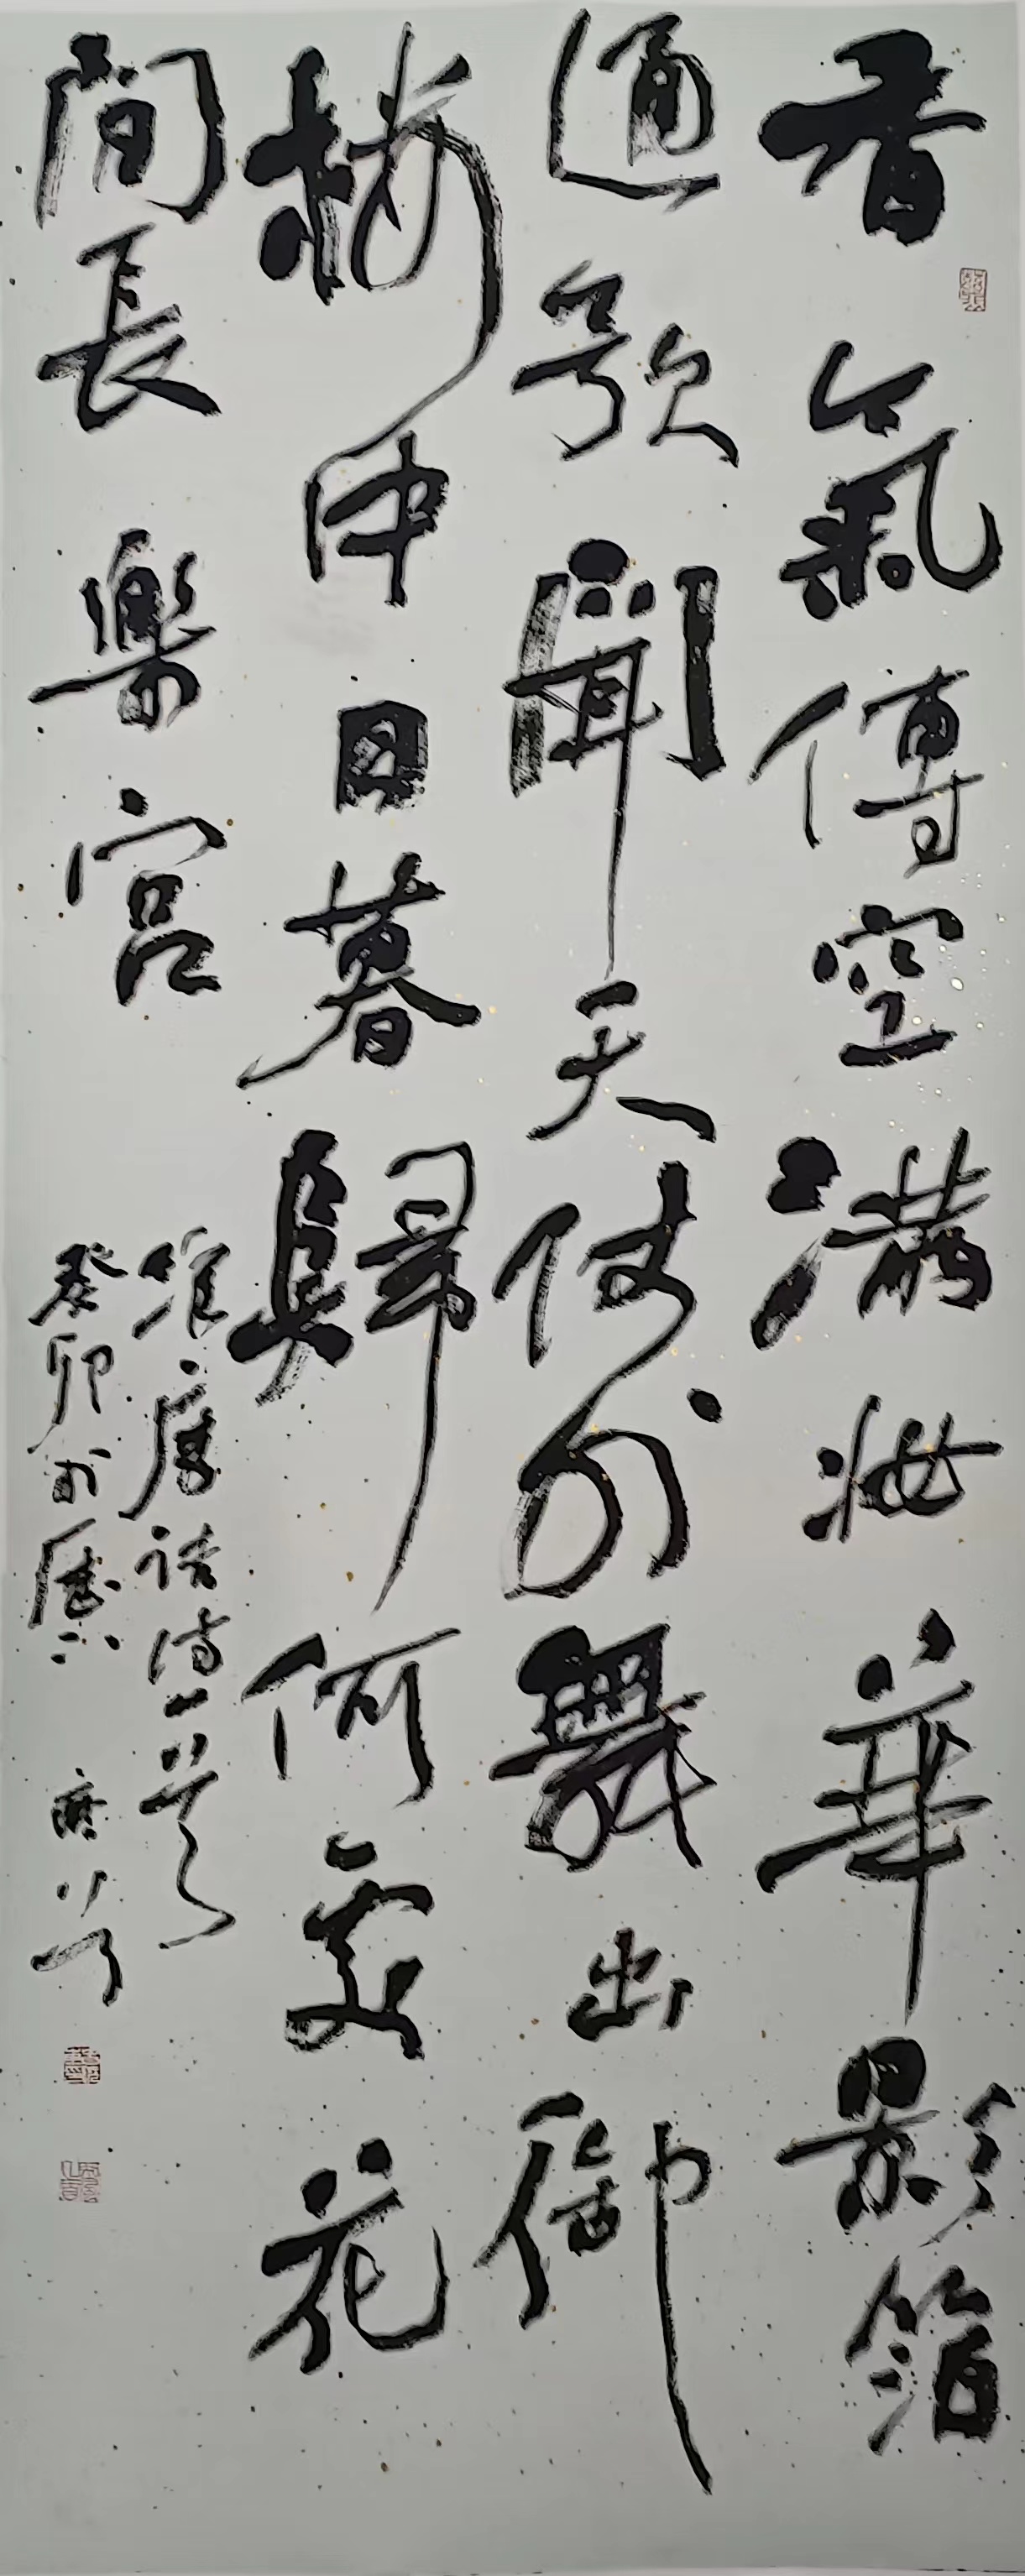 香氣傳空滿妝華影箔
通歌聞天仗外舞出御
樓中日暮歸何處花
間長樂宮
唐詩一首
癸卯於歷下